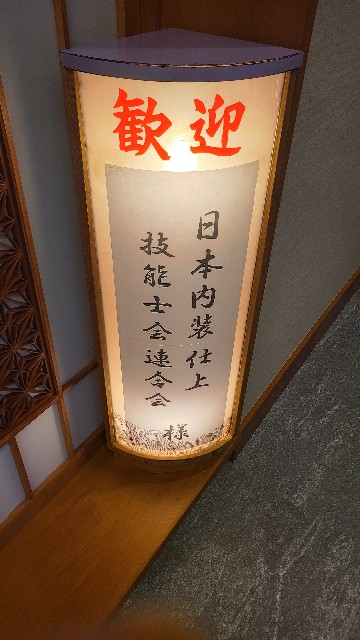 歓迎
日本内装仕上
技能士会連合会
様